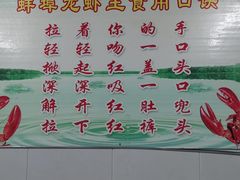 蚌埠龙虾食用口诀
拉着你的手
轻轻吻一口
掀起红盖头
深深吸一口
解开红肚兜
拉下红裤头